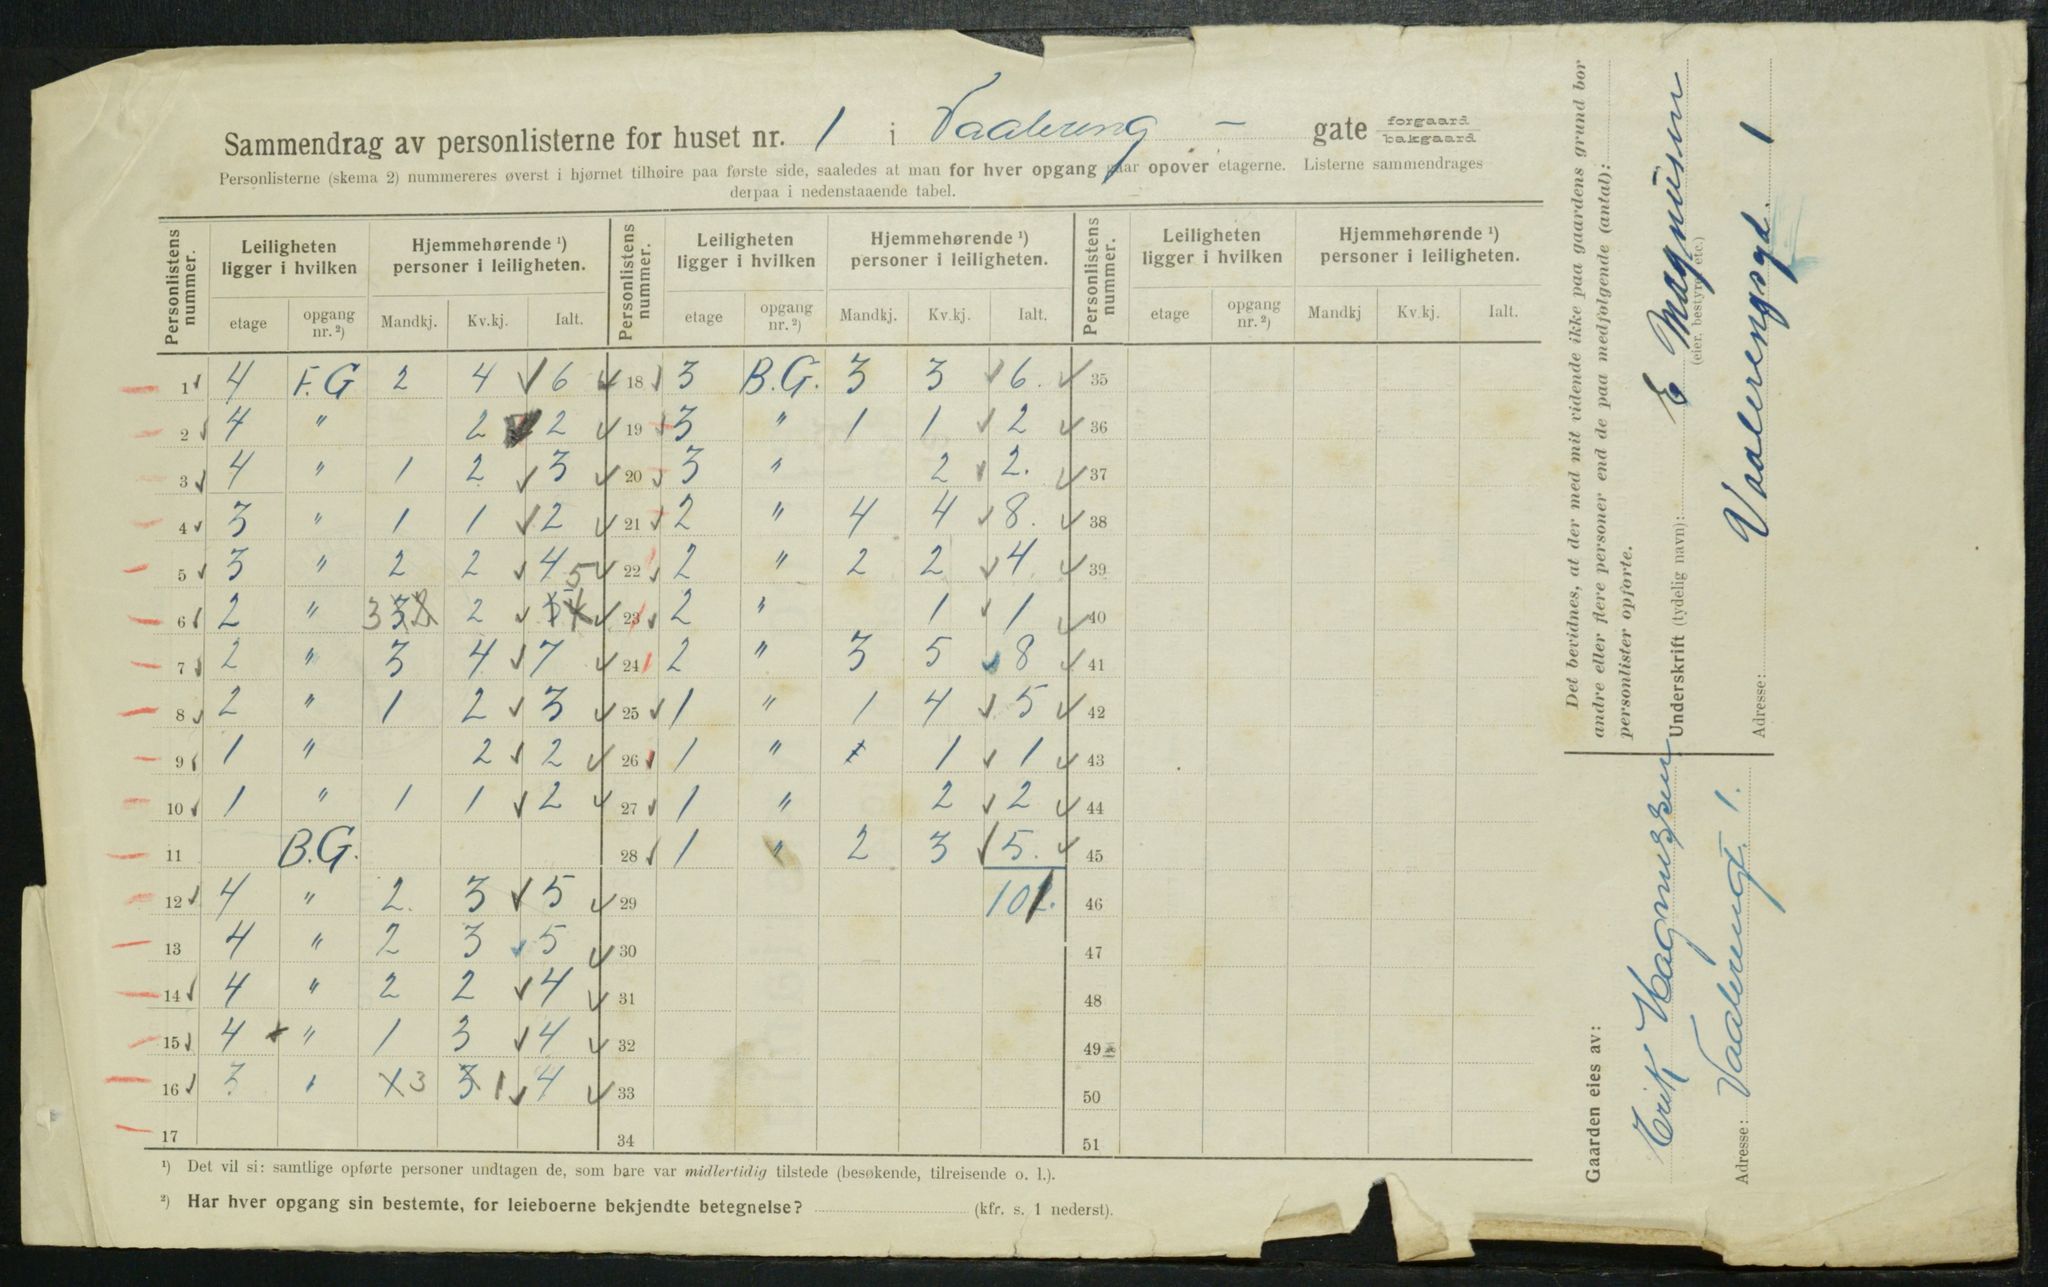 Sammendrag av personlisterne for huset nr. 1 i Vaalereng - gate forgaard bakgaard
Personlisterne (skema 2) nummereres øverst i hjørnet tilhøire paa første side, saaledes at man for hver opgang gaar opover etagerne. Listerne sammendrages
derpaa i nedenstaaende tabel.
Personlistens nummer. Leiligheten ligger i hvilken Hjemmehørende ¹) personer i leiligheten. Personlistens nummer. Leiligheten ligger i hvilken Hjemmehørende ¹) personer i leiligheten. Personlistens nummer. Leiligheten ligger i hvilken Hjemmehørende ¹) personer i leiligheten.
etage opgang nr. ²) Mandkj. Kv.kj. Ialt. etage opgang nr. ²) Mandkj. Kv.kj. Ialt. etage opgang nr. ²) Mandkj Kv.kj. Ialt.
1 4 F.G 2 4 6 18 3 B.G. 3 3 6. 35
2 4 " 2 2 19 3 " 1 1 2 36
3 4 " 1 2 3 20 3 " 2 2. 37
4 3 " 1 1 2 21 2 " 4 4 8. 38
5 3 " 2 2 4 22 2 " 2 2 4 39
6 2 " 3 2 5 23 2 " 1 1 40
7 2 " 3 4 7 24 2 " 3 5 8 41
8 2 " 1 2 3 25 1 " 1 4 5 42
9 1 " 2 2 26 1 " 1 1 43
10 1 " 1 1 2 27 1 " 2 2 44
11 B.G. 28 1 " 2 3 5. 45
12 4 " 2. 3 5 29 102. 46
13 4 " 2 3 5 30 47
14 4 " 2 2 4 31 48
15 4 " 1 3 4 32 49
16 3 " 3 1 4 33 50
17 34 51
¹) Det vil si: samtlige opførte personer undtagen de, som bare var midlertidig tilstede (besøkende, tilreisende o. l.).
²) Har hver opgang sin bestemte, for leieboerne bekjendte betegnelse? (kfr. s. 1 nederst).
Det bevidnes, at der med mit vidende ikke paa gaardens grund bor
andre eller flere personer end de paa medfølgende (antal):
personlister opførte.
Underskrift (tydelig navn): E Magnusen
(eier, bestyrer etc.)
Adresse: Vaalerengsgd. 1
Gaarden eies av:
Erik Magnussen
Adresse: Vaalerengt. 1.